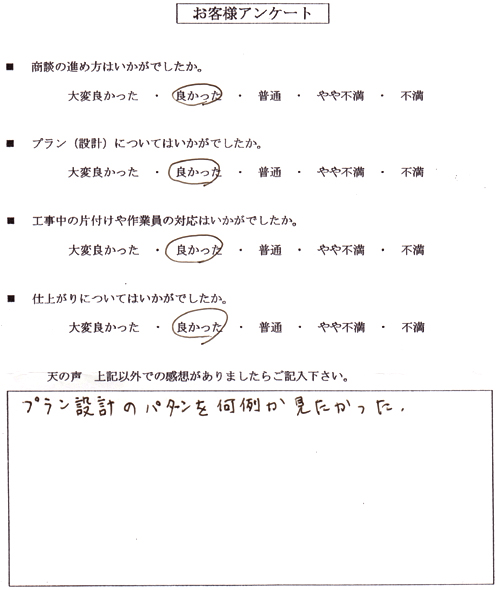 お客様アンケート
■ 商談の進め方はいかがでしたか。
大変良かった ・ 良かった ・ 普通 ・ やや不満 ・ 不満
■ プラン（設計）についてはいかがでしたか。
大変良かった ・ 良かった ・ 普通 ・ やや不満 ・ 不満
■ 工事中の片付けや作業員の対応はいかがでしたか。
大変良かった ・ 良かった ・ 普通 ・ やや不満 ・ 不満
■ 仕上がりについてはいかがでしたか。
大変良かった ・ 良かった ・ 普通 ・ やや不満 ・ 不満
天の声 上記以外での感想がありましたらご記入下さい。
プラン設計のパターンを何例か見たかった.